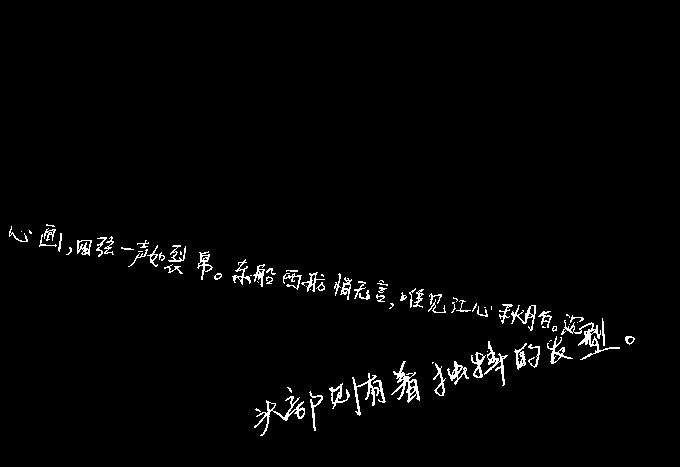 心画,四弦一声如裂帛。东船西舫悄无言,唯见江心秋月白。沉
头部则有着独特的发型。